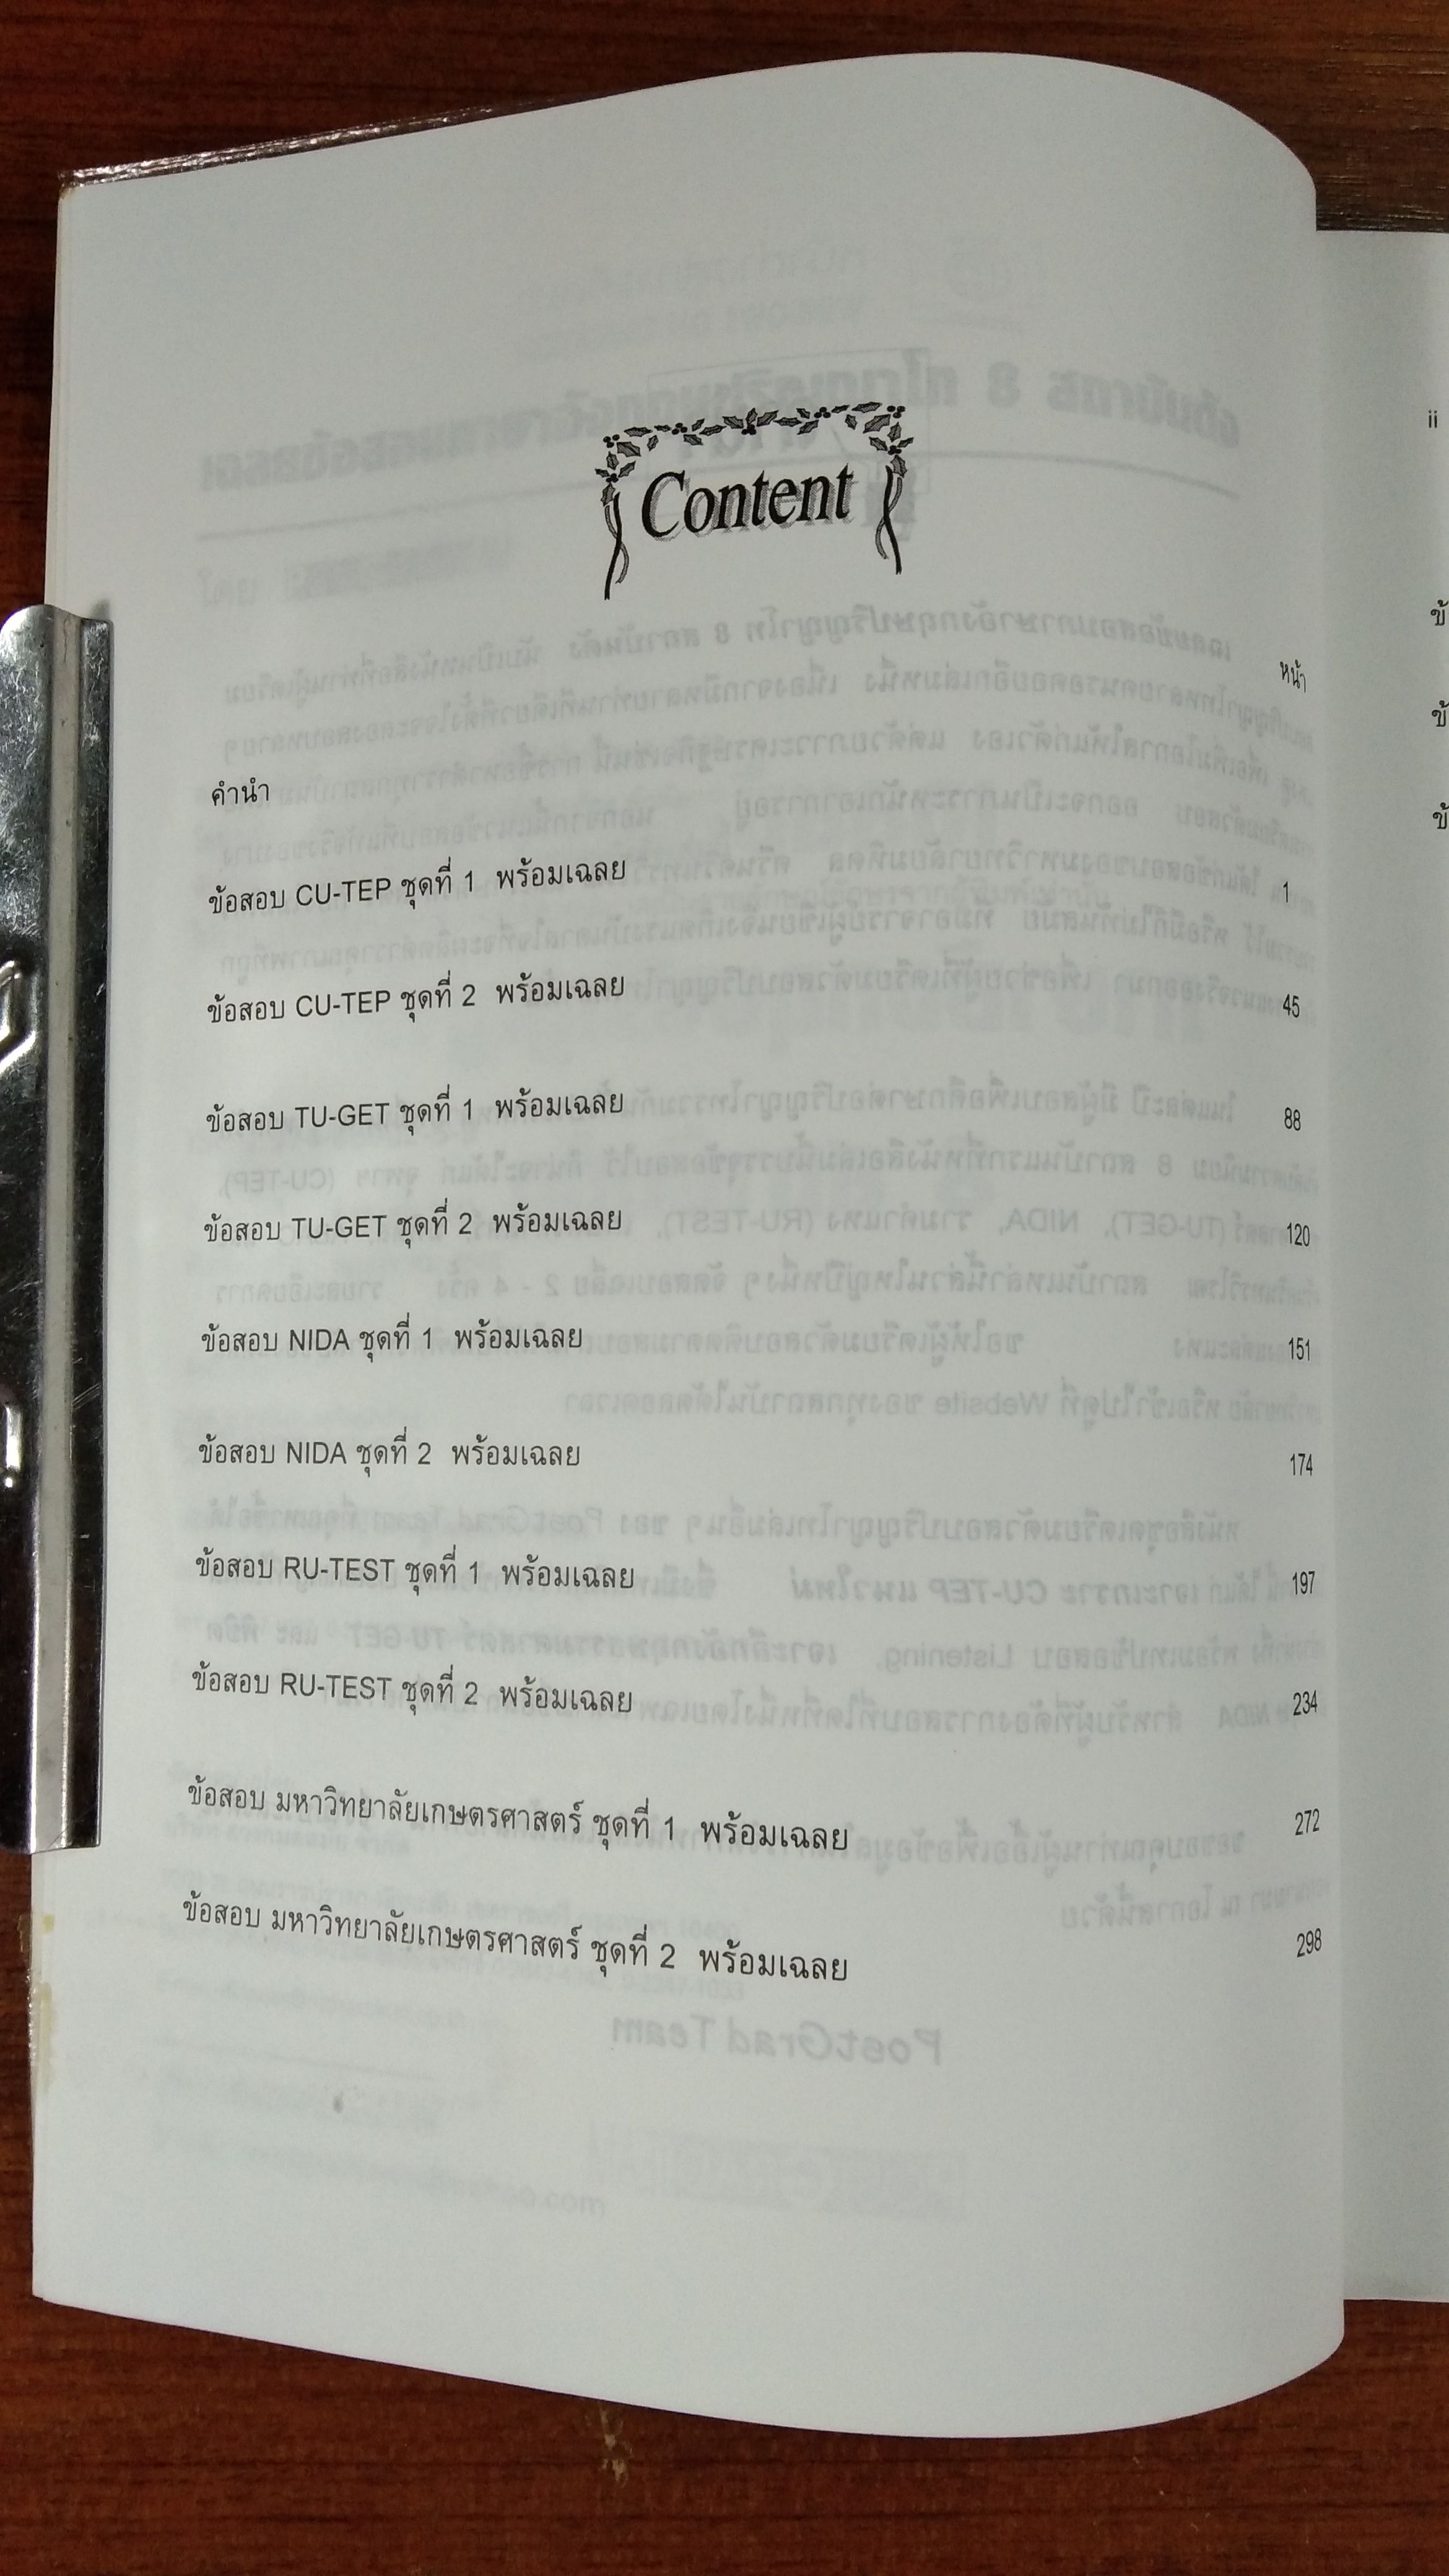 Content
หน้า
คำนำ
ข้อสอบ CU-TEP ชุดที่ 1 พร้อมเฉลย 1
ข้อสอบ CU-TEP ชุดที่ 2 พร้อมเฉลย 45
ข้อสอบ TU-GET ชุดที่ 1 พร้อมเฉลย 88
ข้อสอบ TU-GET ชุดที่ 2 พร้อมเฉลย 120
ข้อสอบ NIDA ชุดที่ 1 พร้อมเฉลย 151
ข้อสอบ NIDA ชุดที่ 2 พร้อมเฉลย 174
ข้อสอบ RU-TEST ชุดที่ 1 พร้อมเฉลย 197
ข้อสอบ RU-TEST ชุดที่ 2 พร้อมเฉลย 234
ข้อสอบ มหาวิทยาลัยเกษตรศาสตร์ ชุดที่ 1 พร้อมเฉลย 272
ข้อสอบ มหาวิทยาลัยเกษตรศาสตร์ ชุดที่ 2 พร้อมเฉลย 298
ii